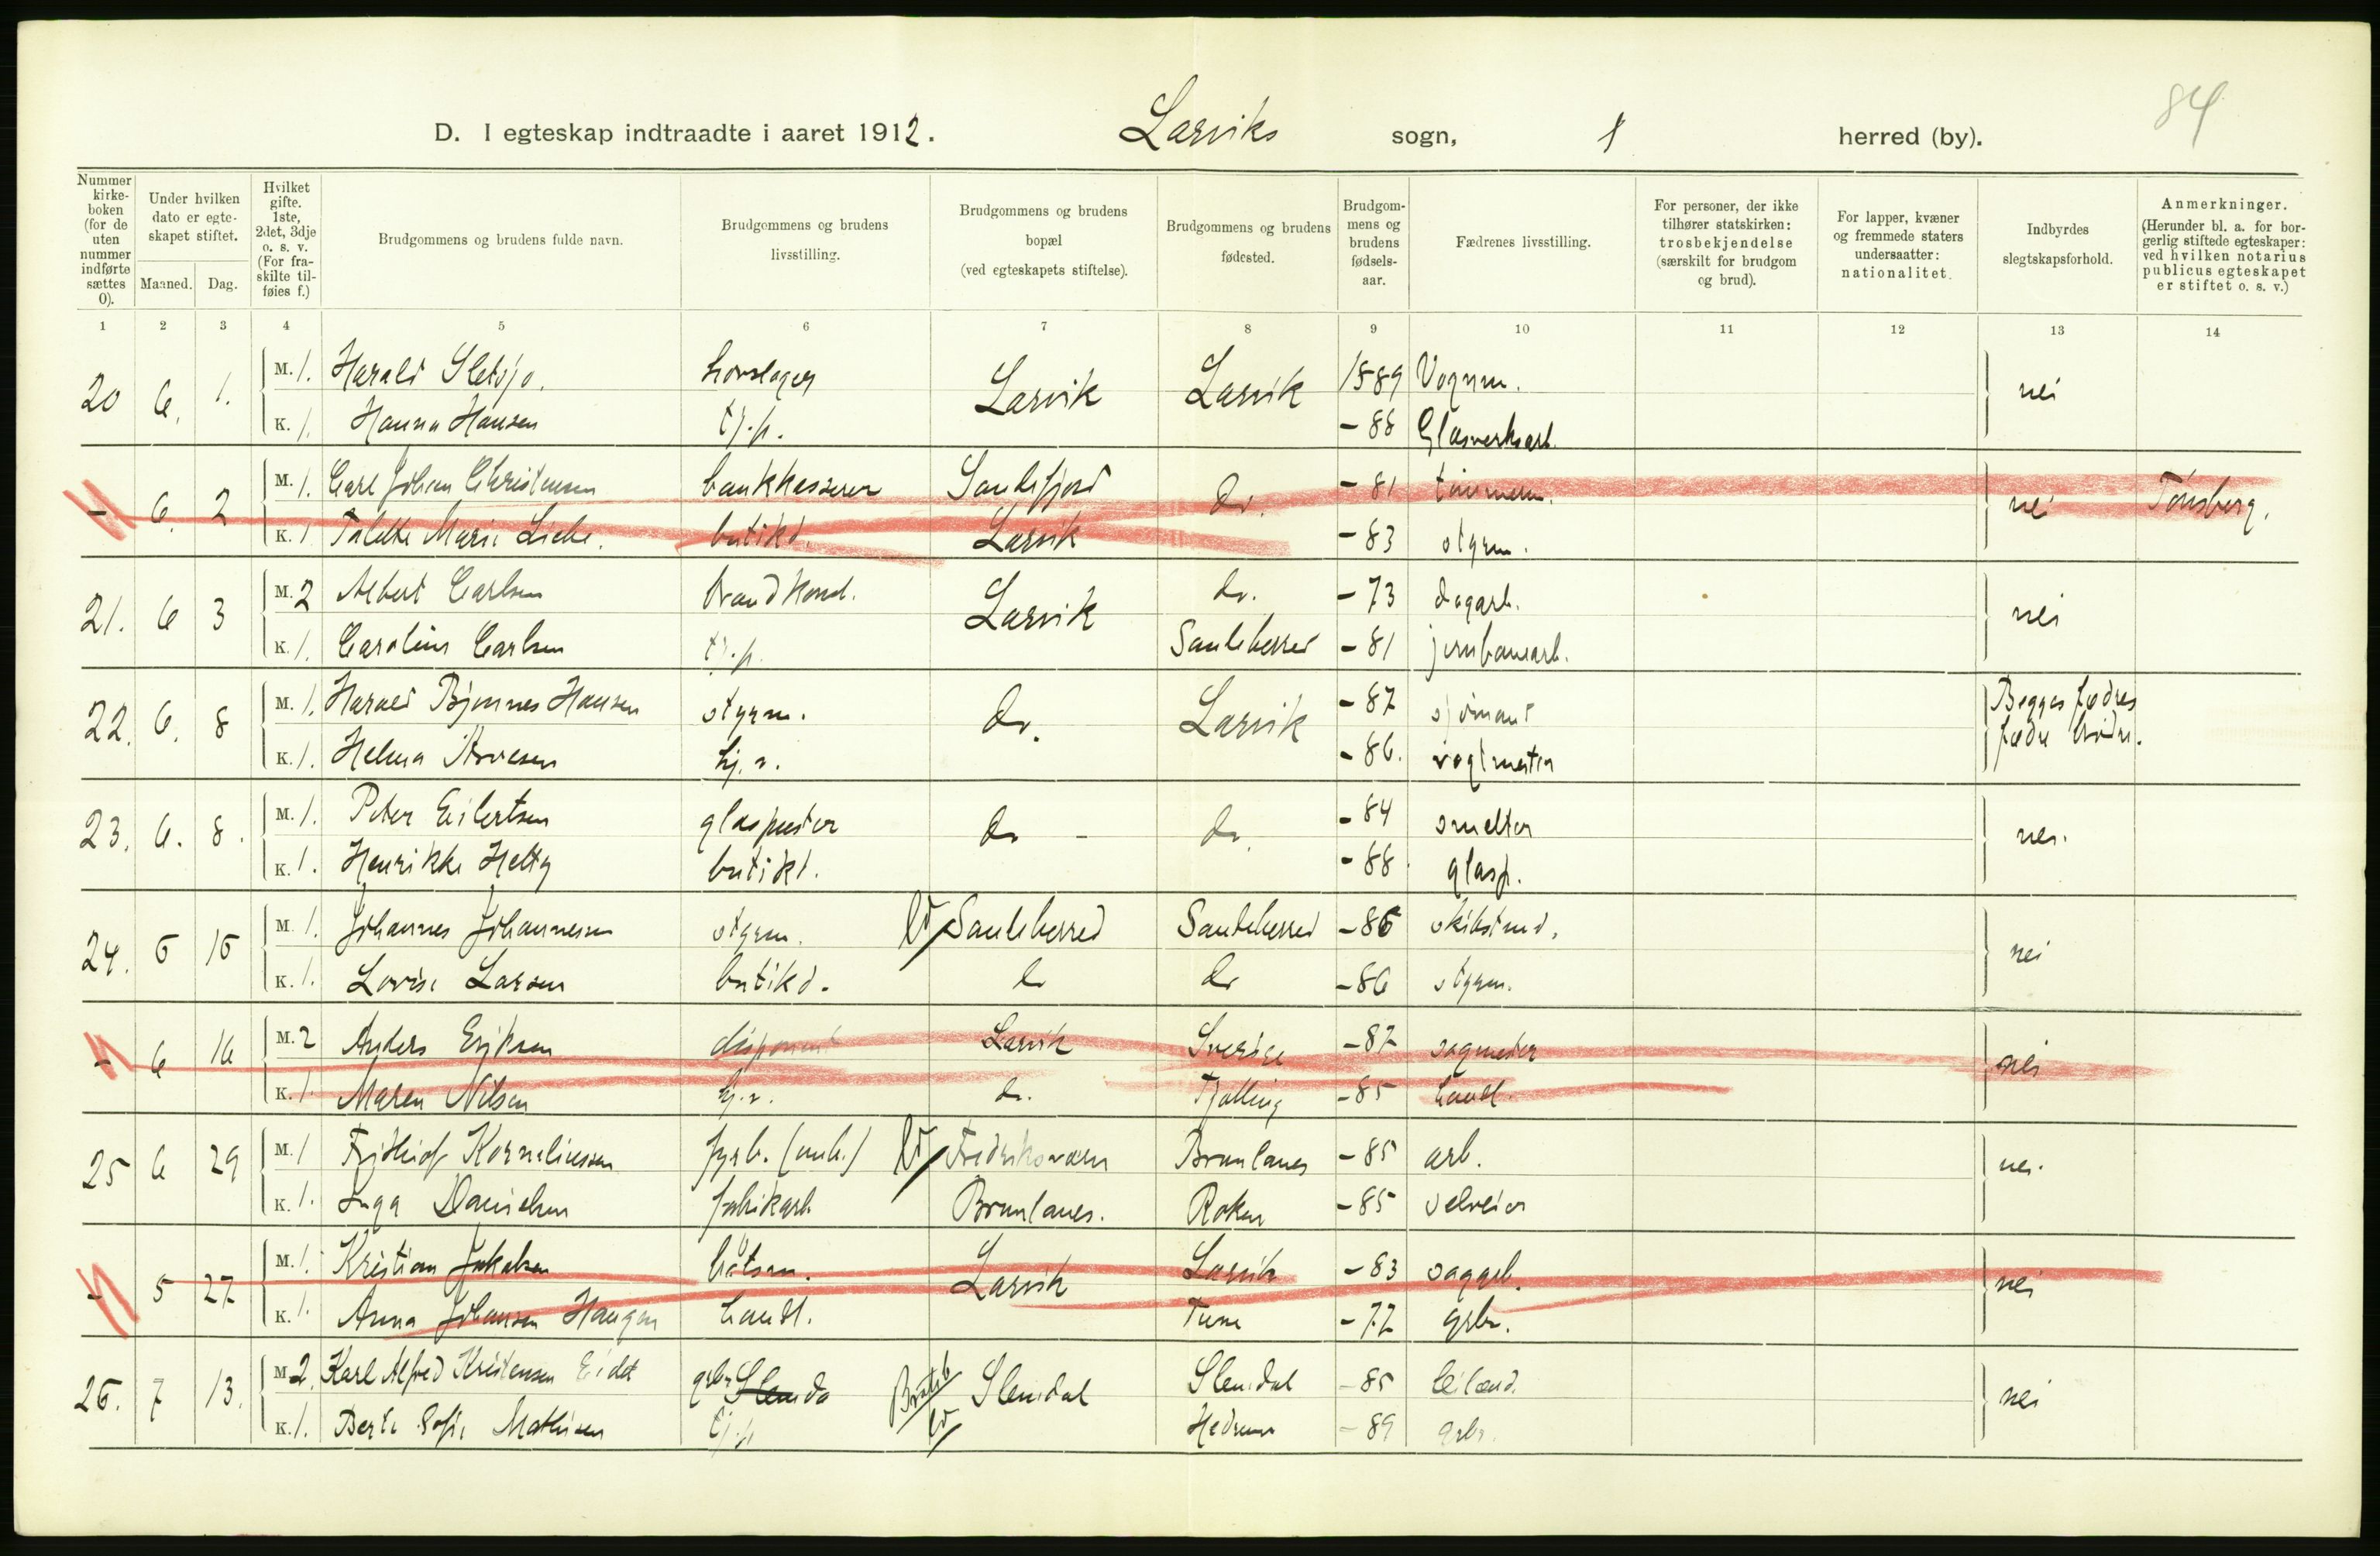 84
D. I egteskap indtraadte i aaret 1912. Larviks sogn, herred (by).
Nummer kirke-boken (for de uten nummer indførte sættes 0).
Under hvilken dato er egte-skapet stiftet.
Maaned. Dag.
Hvilket gifte. 1ste, 2det, 3dje o. s. v. (For fra-skilte til-føies f.)
Brudgommens og brudens fulde navn.
Brudgommens og brudens livsstilling.
Brudgommens og brudens bopæl (ved egteskapets stiftelse).
Brudgommens og brudens fødested.
Brudgom-mens og brudens fødsels-aar.
Fædrenes livsstilling.
For personer, der ikke tilhører statskirken: trosbekjendelse (særskilt for brudgom og brud).
For lapper, kvæner og fremmede staters undersaatter: nationalitet.
Indbyrdes slegtskapsforhold.
Anmerkninger. (Herunder bl. a. for bor-gerlig stiftede egteskaper: ved hvilken notarius publicus egteskapet er stiftet o. s. v.)
1 2 3 4 5 6 7 8 9 10 11 12 13 14
20 6. 1. M. 1. Harald Sletsjø. hovslager Larvik Larvik 1889 Vognm. nei
K. 1. Hanna Hansen tj.p. - 88 Glasverksarb.
- 6. 2 M. 1. Carl Johan Christensen bankkasserer Sandefjord do. - 81 tømmerm. nei Tønsberg.
K. 1 Talette Marie Lie butikd. Larvik - 83 styrm.
21. 6 3 M. 2 Albert Carlsen brandkonst. Larvik do. - 73 dagarb. nei
K. 1. Caroline Carlsen tj.p. Sandeherred - 81 jernbanearb.
22. 6. 8 M. 1. Harald Bjønnes Hansen styrm. do. Larvik - 87 sjømand Begges fædres
K. 1. Helma Iversen hj.d. - 86. vegtmester fædre brødre.
23. 6. 8. M. 1. Peter Eilertsen glaspuster do - do. - 84 smelter nei.
K. 1. Henrikke Helty butikd. - 88. glasp.
24. 6 15 M. 1. Johannes Johannesen styrm. Sandeherred Sandeherred - 86 skibstmd. nei
K. 1. Lovise Larsen butikd. do do - 86 styrm.
- 6 16 M. 2 Anders Eriksen disponent Larvik Sverige - 82 sagmester nei
K. 1. Maren Nilsen hj.d. do. Tjølling - 85 handl.
25 6 29 M. 1 Fridthjof Korneliussen fyrb. (umb.) Fredriksværn Brunlanes - 85 arb. nei.
K. 1. Inga Danielsen fabrikarb. Brunlanes. Røken - 85 selveier
- 5 27 M. 1. Kristian Jakobsen båtsm. Larvik Larvik - 83 sagarb. nei
K. 1. Anna Johansen Haugen handl. Tune - 72 grbr.
26. 7 13. M. 2. Karl Alfred Kristensen Eidet grbr Slemda Slemdal Slemdal - 85 leilænd. nei
K. 1. Berte Sofie Mathisen tj.p Hedrum - 89 grbr.